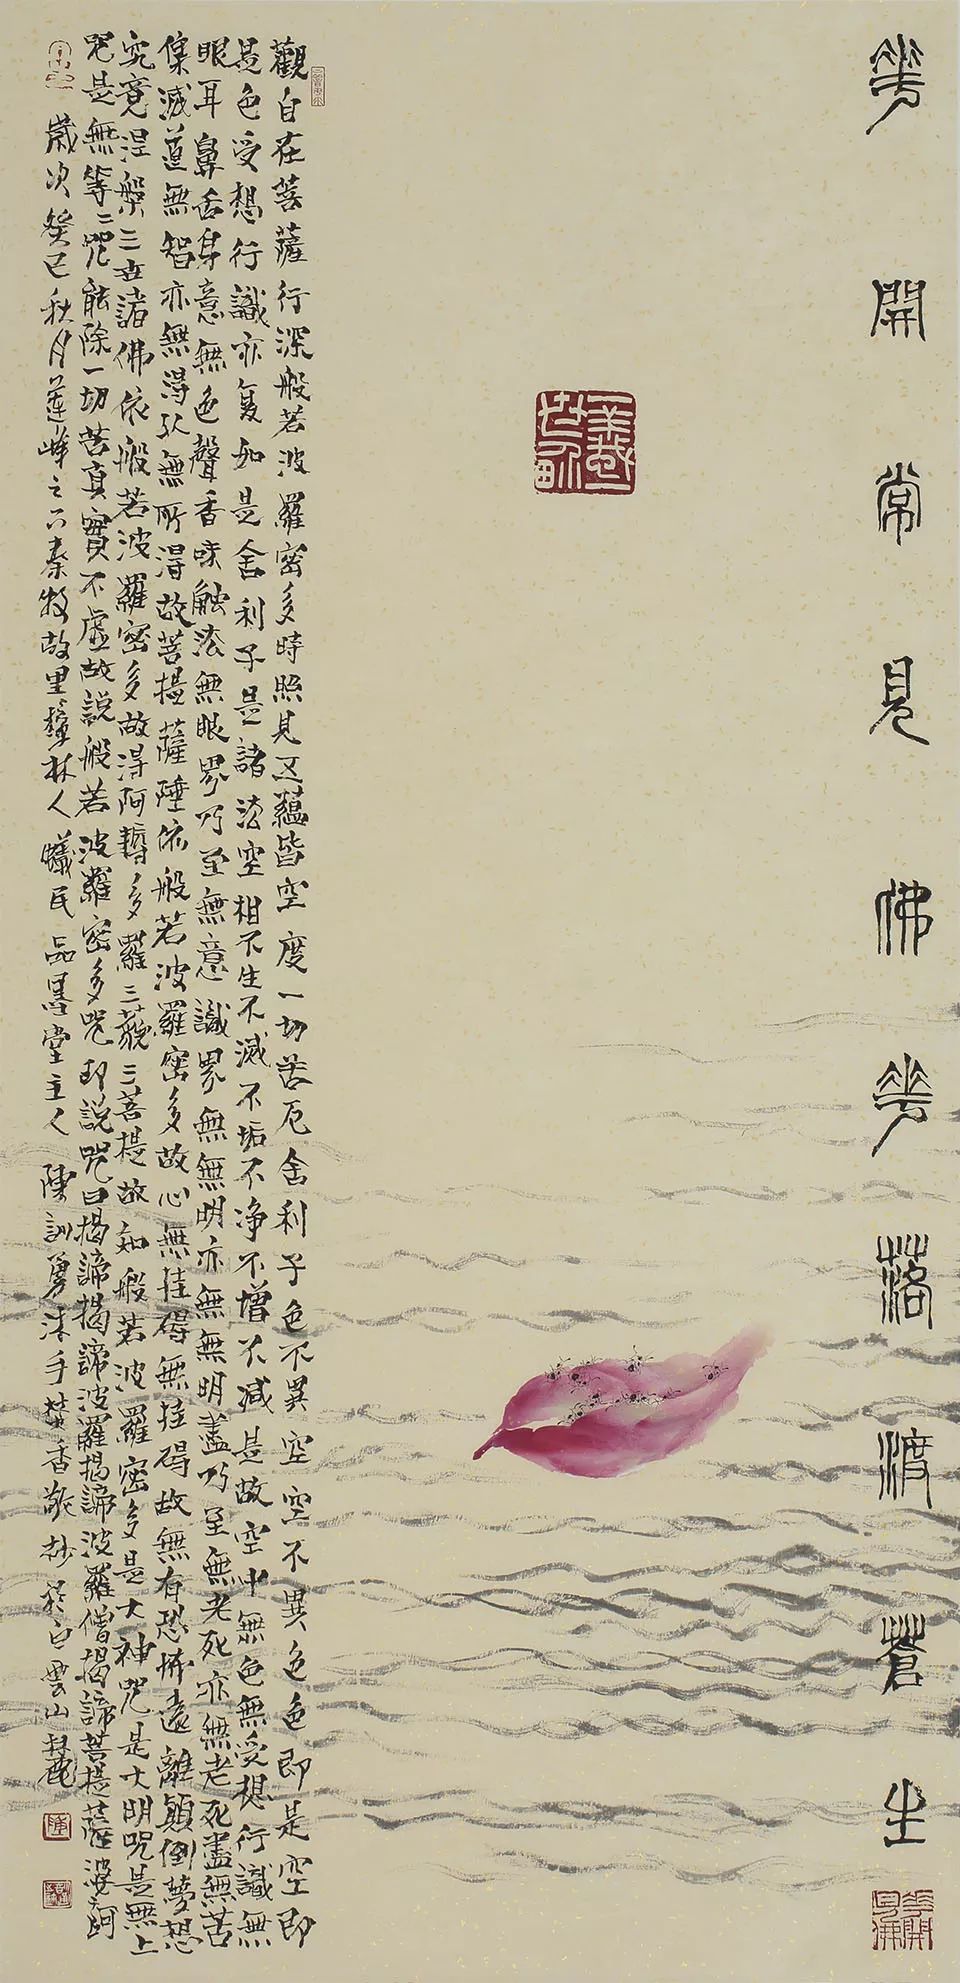 花開常見佛花落渡蒼生
觀自在菩薩行深般若波羅密多時照見五蘊皆空度一切苦厄舍利子色不異空空不異色色即是空即
是色受想行識亦復如是舍利子是諸法空相不生不滅不垢不淨不增不減是故空中無色無受想行識無
眼耳鼻舌身意無色聲香味觸法無眼界乃至無意識界無無明亦無無明盡乃至無老死亦無老死盡無苦
集滅道無智亦無得以無所得故菩提薩埵依般若波羅密多故心無挂碍無挂碍故無有恐怖遠離顛倒夢想
究竟涅槃三世諸佛依般若波羅密多故得阿耨多羅三藐三菩提故知般若波羅密多是大神咒是大明咒是無上
咒是無等等咒能除一切苦真實不虛故說般若波羅密多咒即說咒曰揭諦揭諦波羅揭諦波羅僧揭諦菩提薩婆訶
歲次癸巳秋月蓮峰之下秦牧故里樟林人蟻民品墨堂主人陳訓勇沐手焚香敬抄於白雲山麓